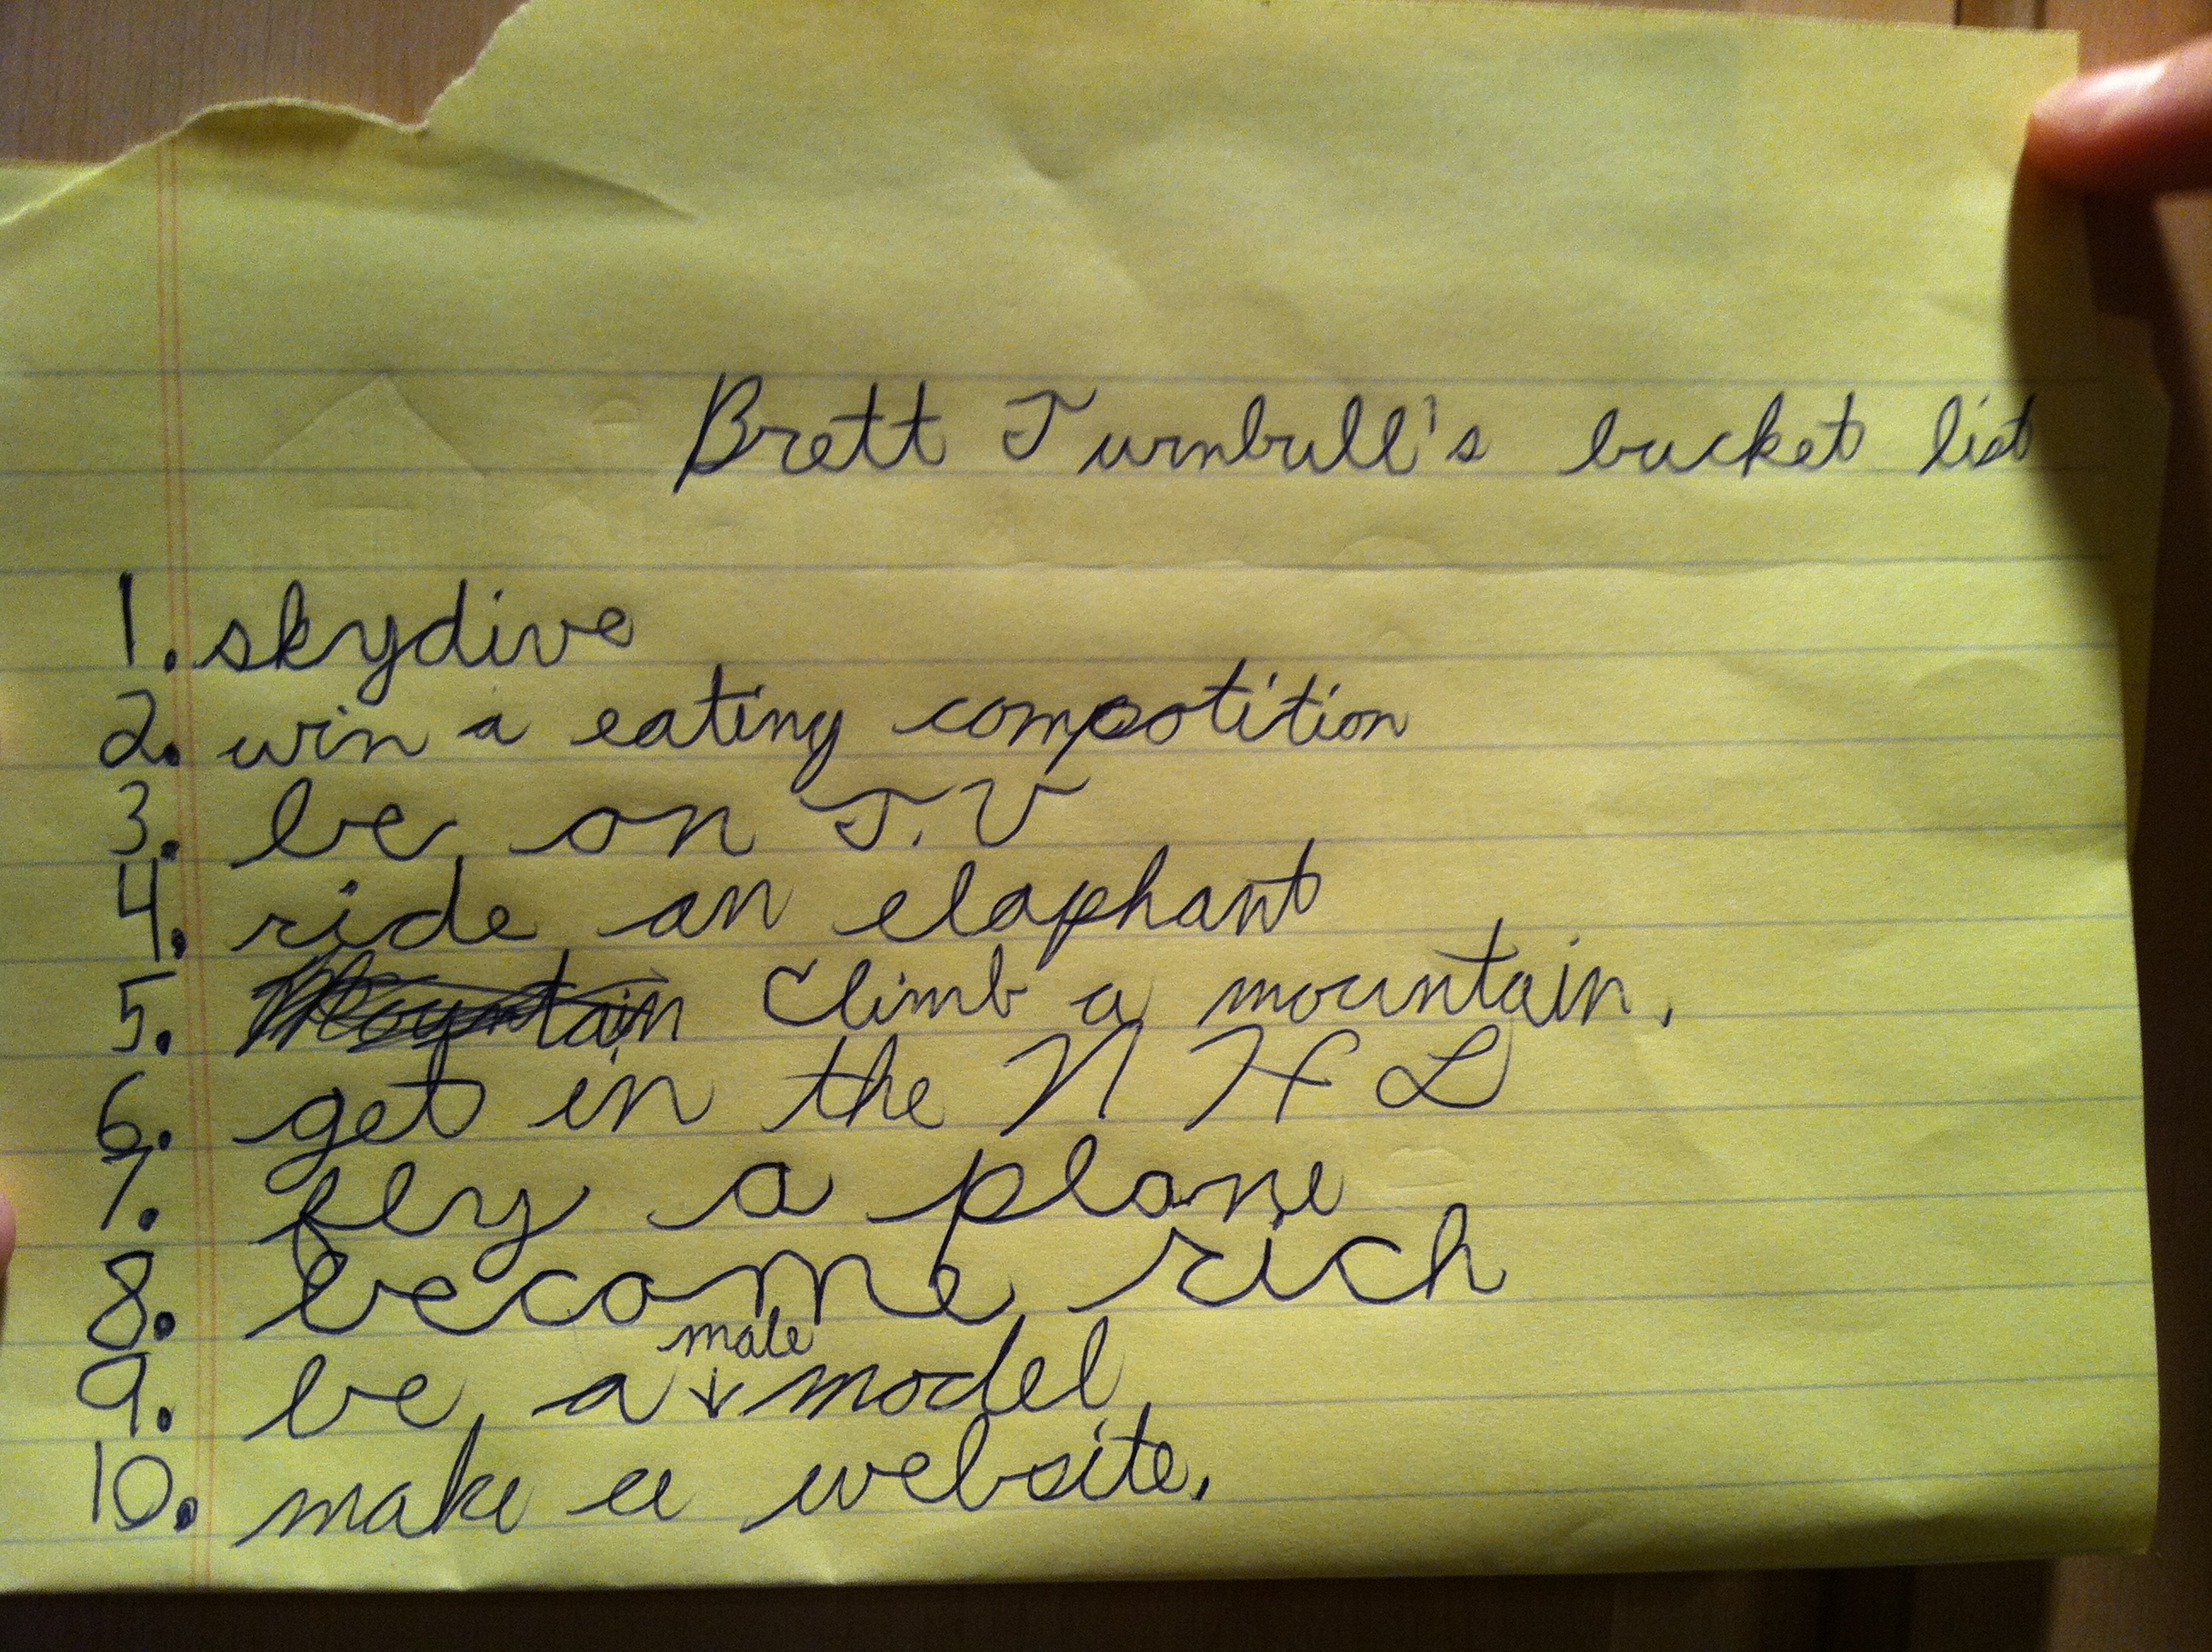 Brett Turnbull's bucket list
1. skydive
2. win a eating compotition
3. be on T.V
4. ride an elaphant
5. Mountain Climb a mountain.
6. get in the NHL
7. fly a plane
8. become rich
9. be a male model
10. make a website.